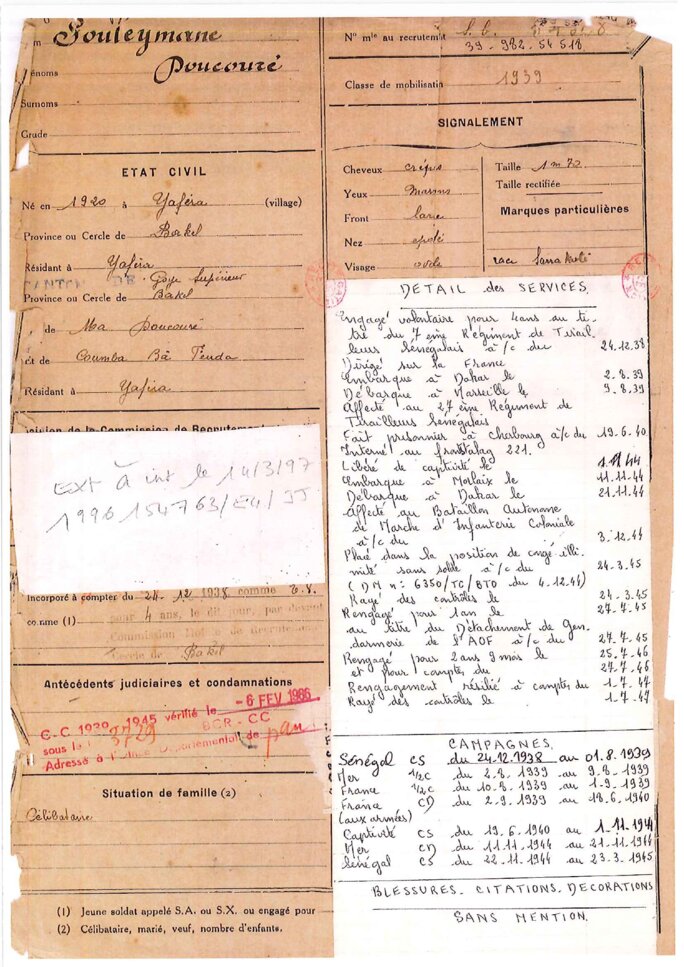 Souleymane
Doucouré
Prénoms
Surnoms
Grade
ETAT CIVIL
Né en 1920 à Yaféra (village)
Province ou Cercle de Bakel
Résidant à Yaféra
CANTON DE Goye Supérieur
Province ou Cercle de Bakel
de Ma Doucouré
et de Coumba Bâ Tenda
Résidant à Yaféra
EXT À int le 14/3/97
1996154763/E4/JJ
Incorporé à compter du 24.12.1938 comme E.V.
comme (1) pour 4 ans, le dit jour, par devant
Commission de Recrutement
Cercle de Bakel
Antécédents judiciaires et condamnations
-6 FEV 1986
C-C 1939-1945 vérifié le
sous le 3729 BCR-CC
Adressé à l'Office Départemental de
Situation de famille (2)
Célibataire
(1) Jeune soldat appelé S.A. ou S.X. ou engagé pour
(2) Célibataire, marié, veuf, nombre d'enfants.
N° mle au recrutement
39-982-54518
Classe de mobilisation 1939
SIGNALEMENT
Cheveux crépus
Yeux Marrons
Front
Nez
Visage ovale
Taille 1m70
Taille rectifiée
Marques particulières
race Sarrakolé
DETAIL des SERVICES
Engagé volontaire pour 4 ans au ti-
tre du 7ème Régiment de Tirail
leurs Sénégalais à/c du 24.12.38
Dirigé sur la France
Embarque à Dakar le 2.8.39
Débarque à Marseille le 9.8.39
Affecté au 27ème Régiment de
Tirailleurs Sénégalais
Fait prisonnier à Cherbourg à/c du 19.6.40
Interné au frontstalag 221.
Libéré de captivité le 1.11.44
Embarque à Morlaix le 11.11.44
Débarque à Dakar le 21.11.44
Affecté au Bataillon Autonome
de Marche d'Infanterie Coloniale
à/c du 3.12.44
Placé dans la position de congé illi-
mité sans solde à/c du 24.3.45
(DM n: 6350/TC/BTO du 4.12.44)
Rayé des contrôles le 24.3.45
Rengagé pour 1 an le 27.7.45
au titre du Détachement de Gen-
darmerie de l'AOF à/c du 27.7.45
Rengagé pour 2 ans 9 mois le 25.7.46
et pour compter du 27.7.46
Rengagement résilié à compter du 1.7.47
Rayé des contrôles le 1.7.47
CAMPAGNES.
Sénégal CS du 24.12.1938 au 01.8.1939
Mer 1/2C du 2.8.1939 au 9.8.1939
France 1/2C du 10.8.1939 au 1.9.1939
France CD du 2.9.1939 au 18.6.1940
(aux armées)
Captivité CS du 19.6.1940 au 1.11.1944
Mer CD du 11.11.1944 au 21.11.1944
Sénégal CS du 22.11.1944 au 23.3.1945
BLESSURES. CITATIONS. DECORATIONS
SANS MENTION.